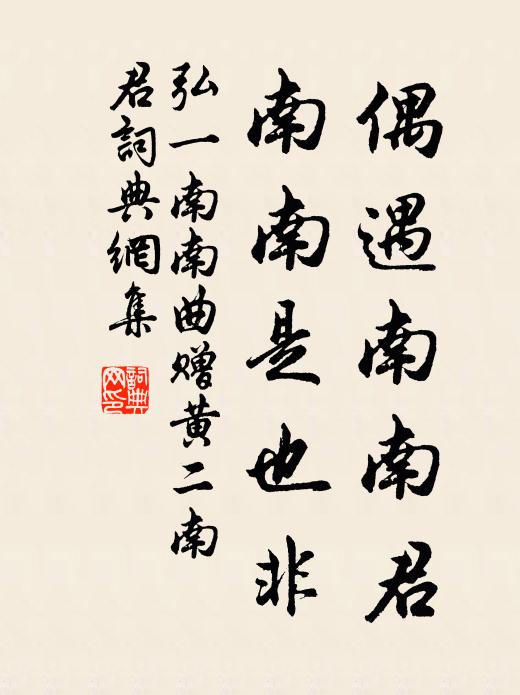 偶遇南南君
南南是也非
弘一南南曲赠黄二南
君詞典網集
詞典网印